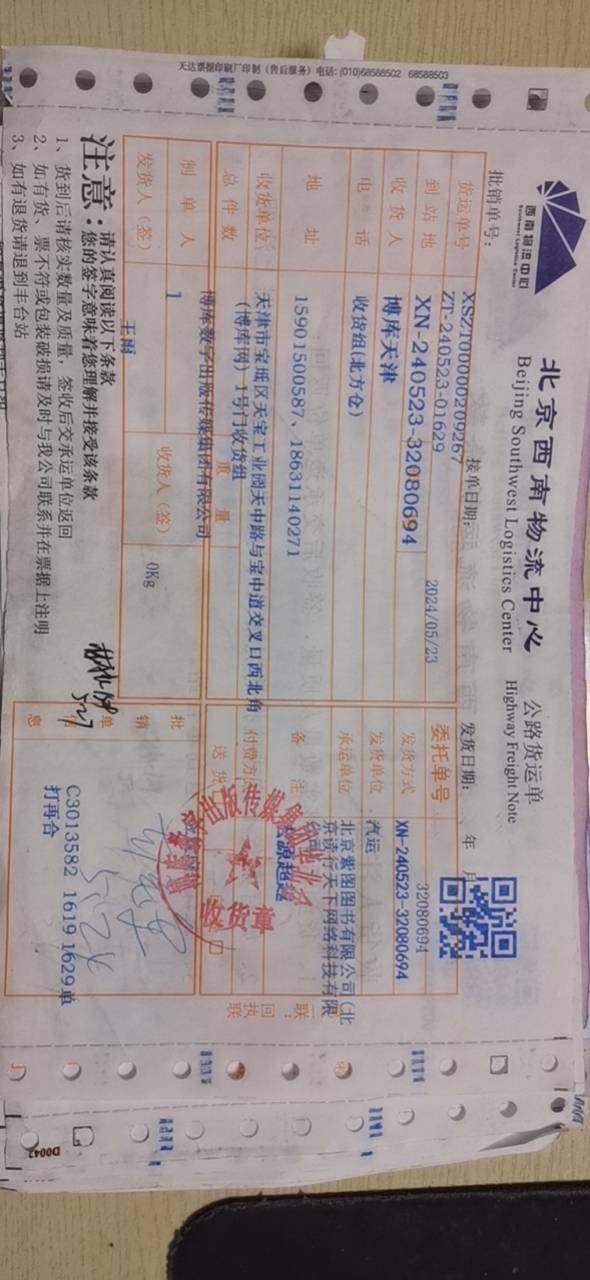 天达票据印刷厂印制（售后服务）电话: (010)68588502 68588503
西南物流中心
Southwest Logistics Center
北京西南物流中心 公路货运单
Beijing Southwest Logistics Center Highway Freight Note
批销单号:
接单日期: 2024/05/23
发货日期: 年 月
XSZT00000209267
货运单号 ZT-240523-01629
委托单号 32080694
到站地 XN-240523-32080694
发货方式 XN-240523-32080694
收货人 博库天津
发货单位 汽运
电话 收货组(北方仓)
承运单位 北京紫图图书有限公司(北京读行天下网络科技有限
地址 15901500587、18631140271
备注
收货单位 天津市宝坻区天宝工业园天中路与宝中道交叉口西北角
(博库网) 1号门收货组
付费方
总件数 重量
送货
博库数字出版传媒集团有限公司
制单人 1
收货人（签） 0Kg
发货人（签） 王雨
批销单信息
C3013582 1619 1629单
打再合
收货章
回执联
注意: 请认真阅读以下条款
您的签字意味着您理解并接受该条款
1、货到后请核实数量及质量，签收后交承运单位返回
2、如有货、票不符或包装破损请及时与我公司联系并在票据上注明
3、如有退货请退到丰台站
527
D0042